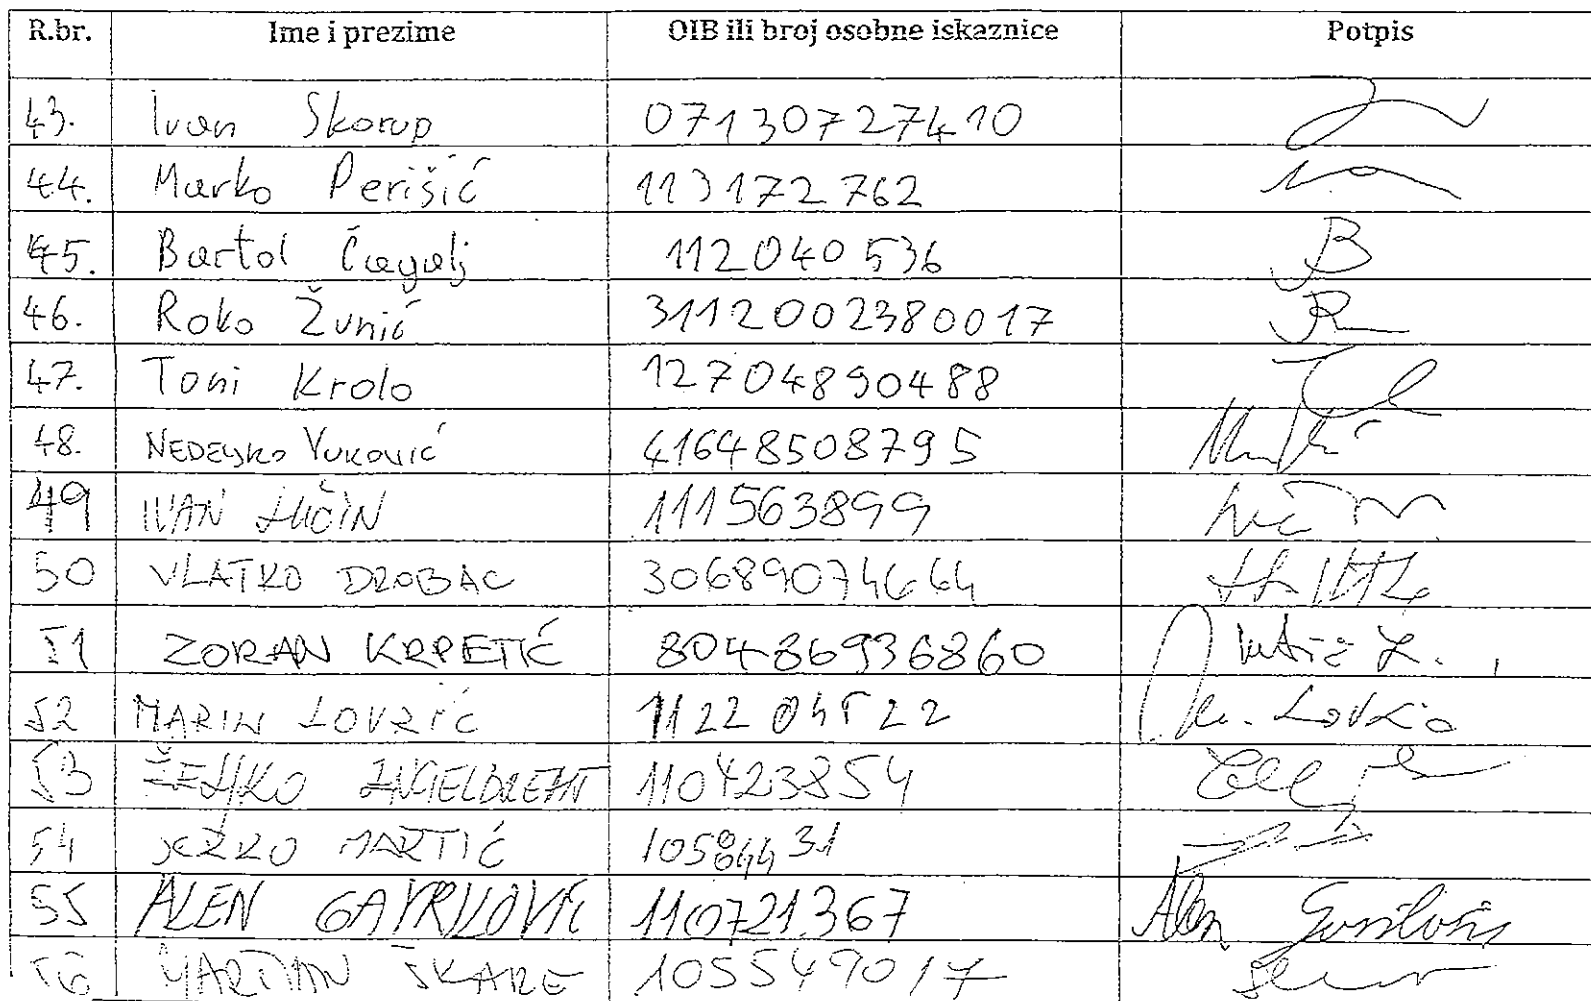 R.br. Ime i prezime OIB ili broj osobne iskaznice Potpis
43. Ivan Skorup 07130727410
44. Marko Perišić 113172762
45. Bartol Čagalj 112040536 B
46. Roko Žunić 3112002380017 R
47. Toni Krolo 12704890488
48. NEDELJKO VUKOVIĆ 41648508795
49 IVAN LUČIN 111563899
50 VLATKO DROBAC 30689074664
51 ZORAN KRPETIĆ 80486936860
52 MARIN LOVRIĆ 112204522
53 ŽELJKO 110423854
54 JERKO MARTIĆ
55 ALEN GAVRILOVIĆ 110721367 Alen Gavrilović
56 MARIJAN ŠKARE 105549017